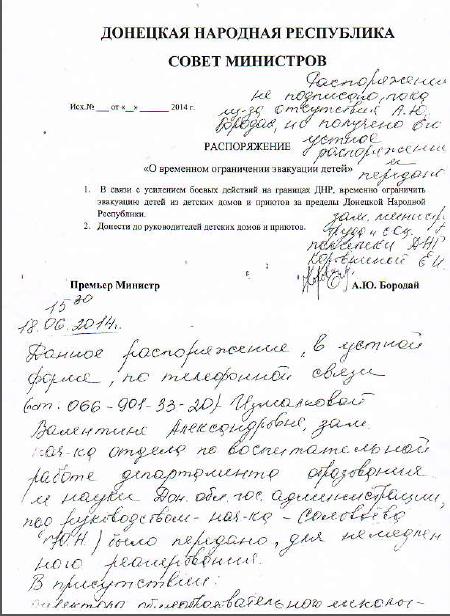 ДОНЕЦКАЯ НАРОДНАЯ РЕСПУБЛИКА
СОВЕТ МИНИСТРОВ
Исх.№ ___ от «__» ______ 2014 г.
Распоряжение
не подписано, пока
из-за отсутствия А.Ю.
Бородая, но получено
устное
распоряжение
и
передано
зам. министр.
труда и соц.
политики ДНР
РАСПОРЯЖЕНИЕ
«О временном ограничении эвакуации детей»
1. В связи с усилением боевых действий на границах ДНР, временно ограничить
эвакуацию детей из детских домов и приютов за пределы Донецкой Народной
Республики.
2. Донести до руководителей детских домов и приютов.
Премьер Министр А.Ю. Бородай
15 30
18.06.2014г.
Данное распоряжение, в устной
форме, по телефонной связи
066-901-33-20) Измалковой
Валентине Александровне, зам.
нач-ка отдела по воспитательной
работе департамента образования
и науки Дон. обл. гос. администрации,
под руководством нач-ка - Соловьёва
Ю.Н.) было передано, для немедлен
ного реагирования.
В присутствии:
директора